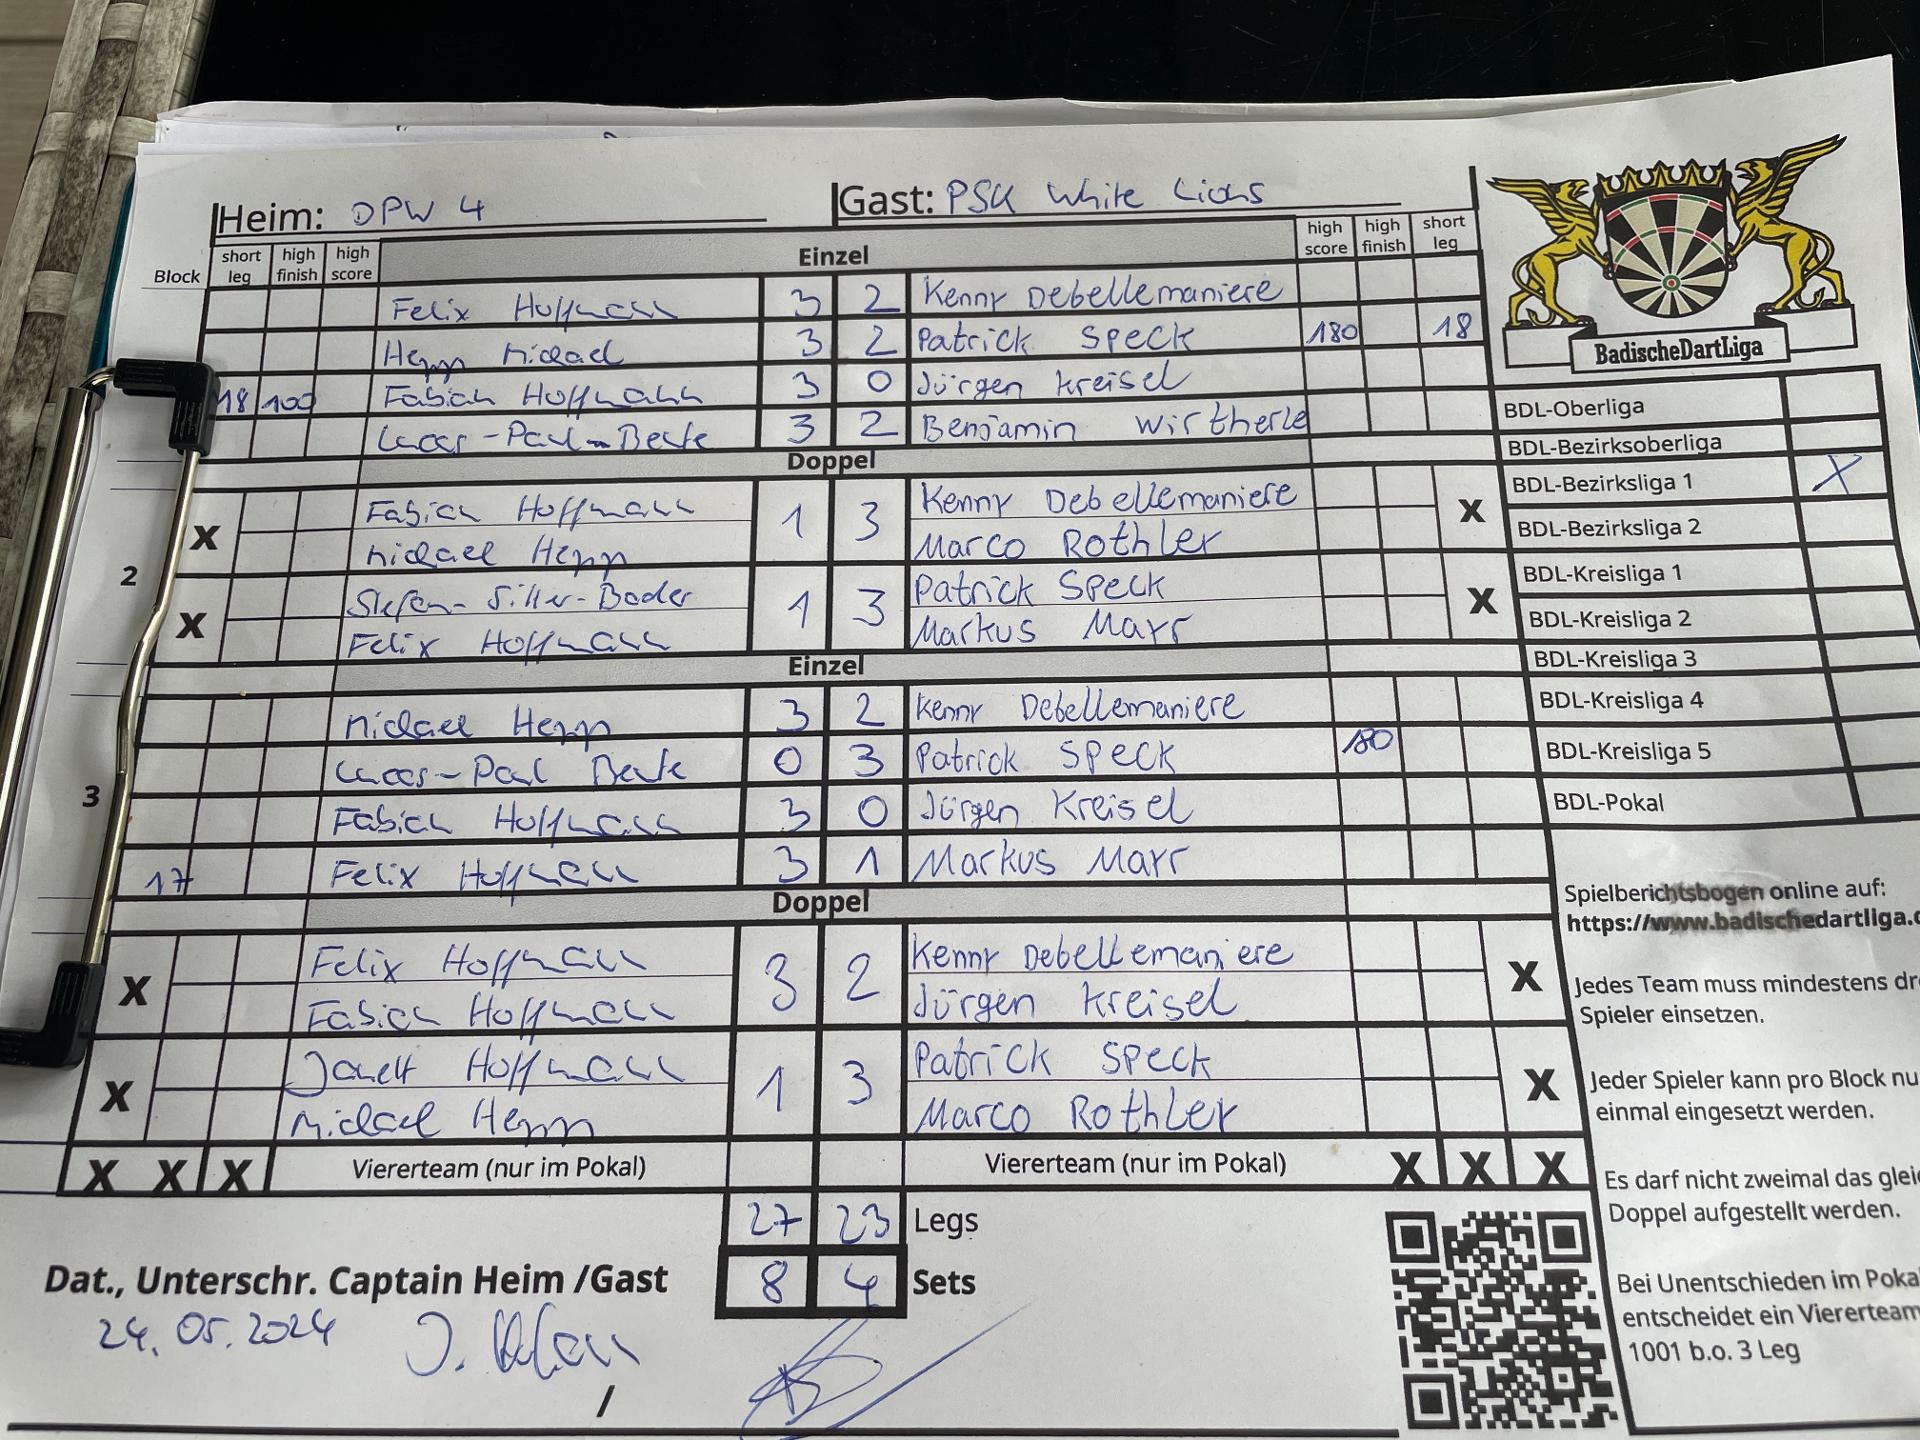 Heim: DPW 4 Gast: PSK White Lions
Block short leg high finish high score Einzel high score high finish short leg
Felix Hoffmann 3 2 Kenny Debellemaniere
Hepp Michael 3 2 Patrick Speck 180 18
18 100 Fabian Hoffmann 3 0 Jürgen Kreisel
Lucas-Paul-Beate 3 2 Benjamin Wirtherle
Doppel
2
X Fabian Hoffmann 1 3 Kenny Debellemaniere X
Michael Hepp Marco Rothler
X Stefan- 1 3 Patrick Speck X
Felix Hoffmann Markus Marr
Einzel
3
Michael Hepp 3 2 Kenny Debellemaniere
Lucas-Paul Beate 0 3 Patrick Speck 180
Fabian Hoffmann 3 0 Jürgen Kreisel
17 Felix Hoffmann 3 1 Markus Marr
Doppel
X Felix Hoffmann 3 2 Kenny Debellemaniere X
Fabian Hoffmann Jürgen Kreisel
X Janett Hoffmann 1 3 Patrick Speck X
Michael Hepp Marco Rothler
X X X Viererteam (nur im Pokal) Viererteam (nur im Pokal) X X X
27 23 Legs
8 4 Sets
Dat., Unterschr. Captain Heim /Gast
24.05.2024
/
BadischeDartLiga
BDL-Oberliga
BDL-Bezirksoberliga
BDL-Bezirksliga 1 X
BDL-Bezirksliga 2
BDL-Kreisliga 1
BDL-Kreisliga 2
BDL-Kreisliga 3
BDL-Kreisliga 4
BDL-Kreisliga 5
BDL-Pokal
Spielberichtsbogen online auf:
https://www.badischedartliga.
Jedes Team muss mindestens dr
Spieler einsetzen.
Jeder Spieler kann pro Block nu
einmal eingesetzt werden.
Es darf nicht zweimal das glei
Doppel aufgestellt werden.
Bei Unentschieden im Poka
entscheidet ein Viererteam
1001 b.o. 3 Leg